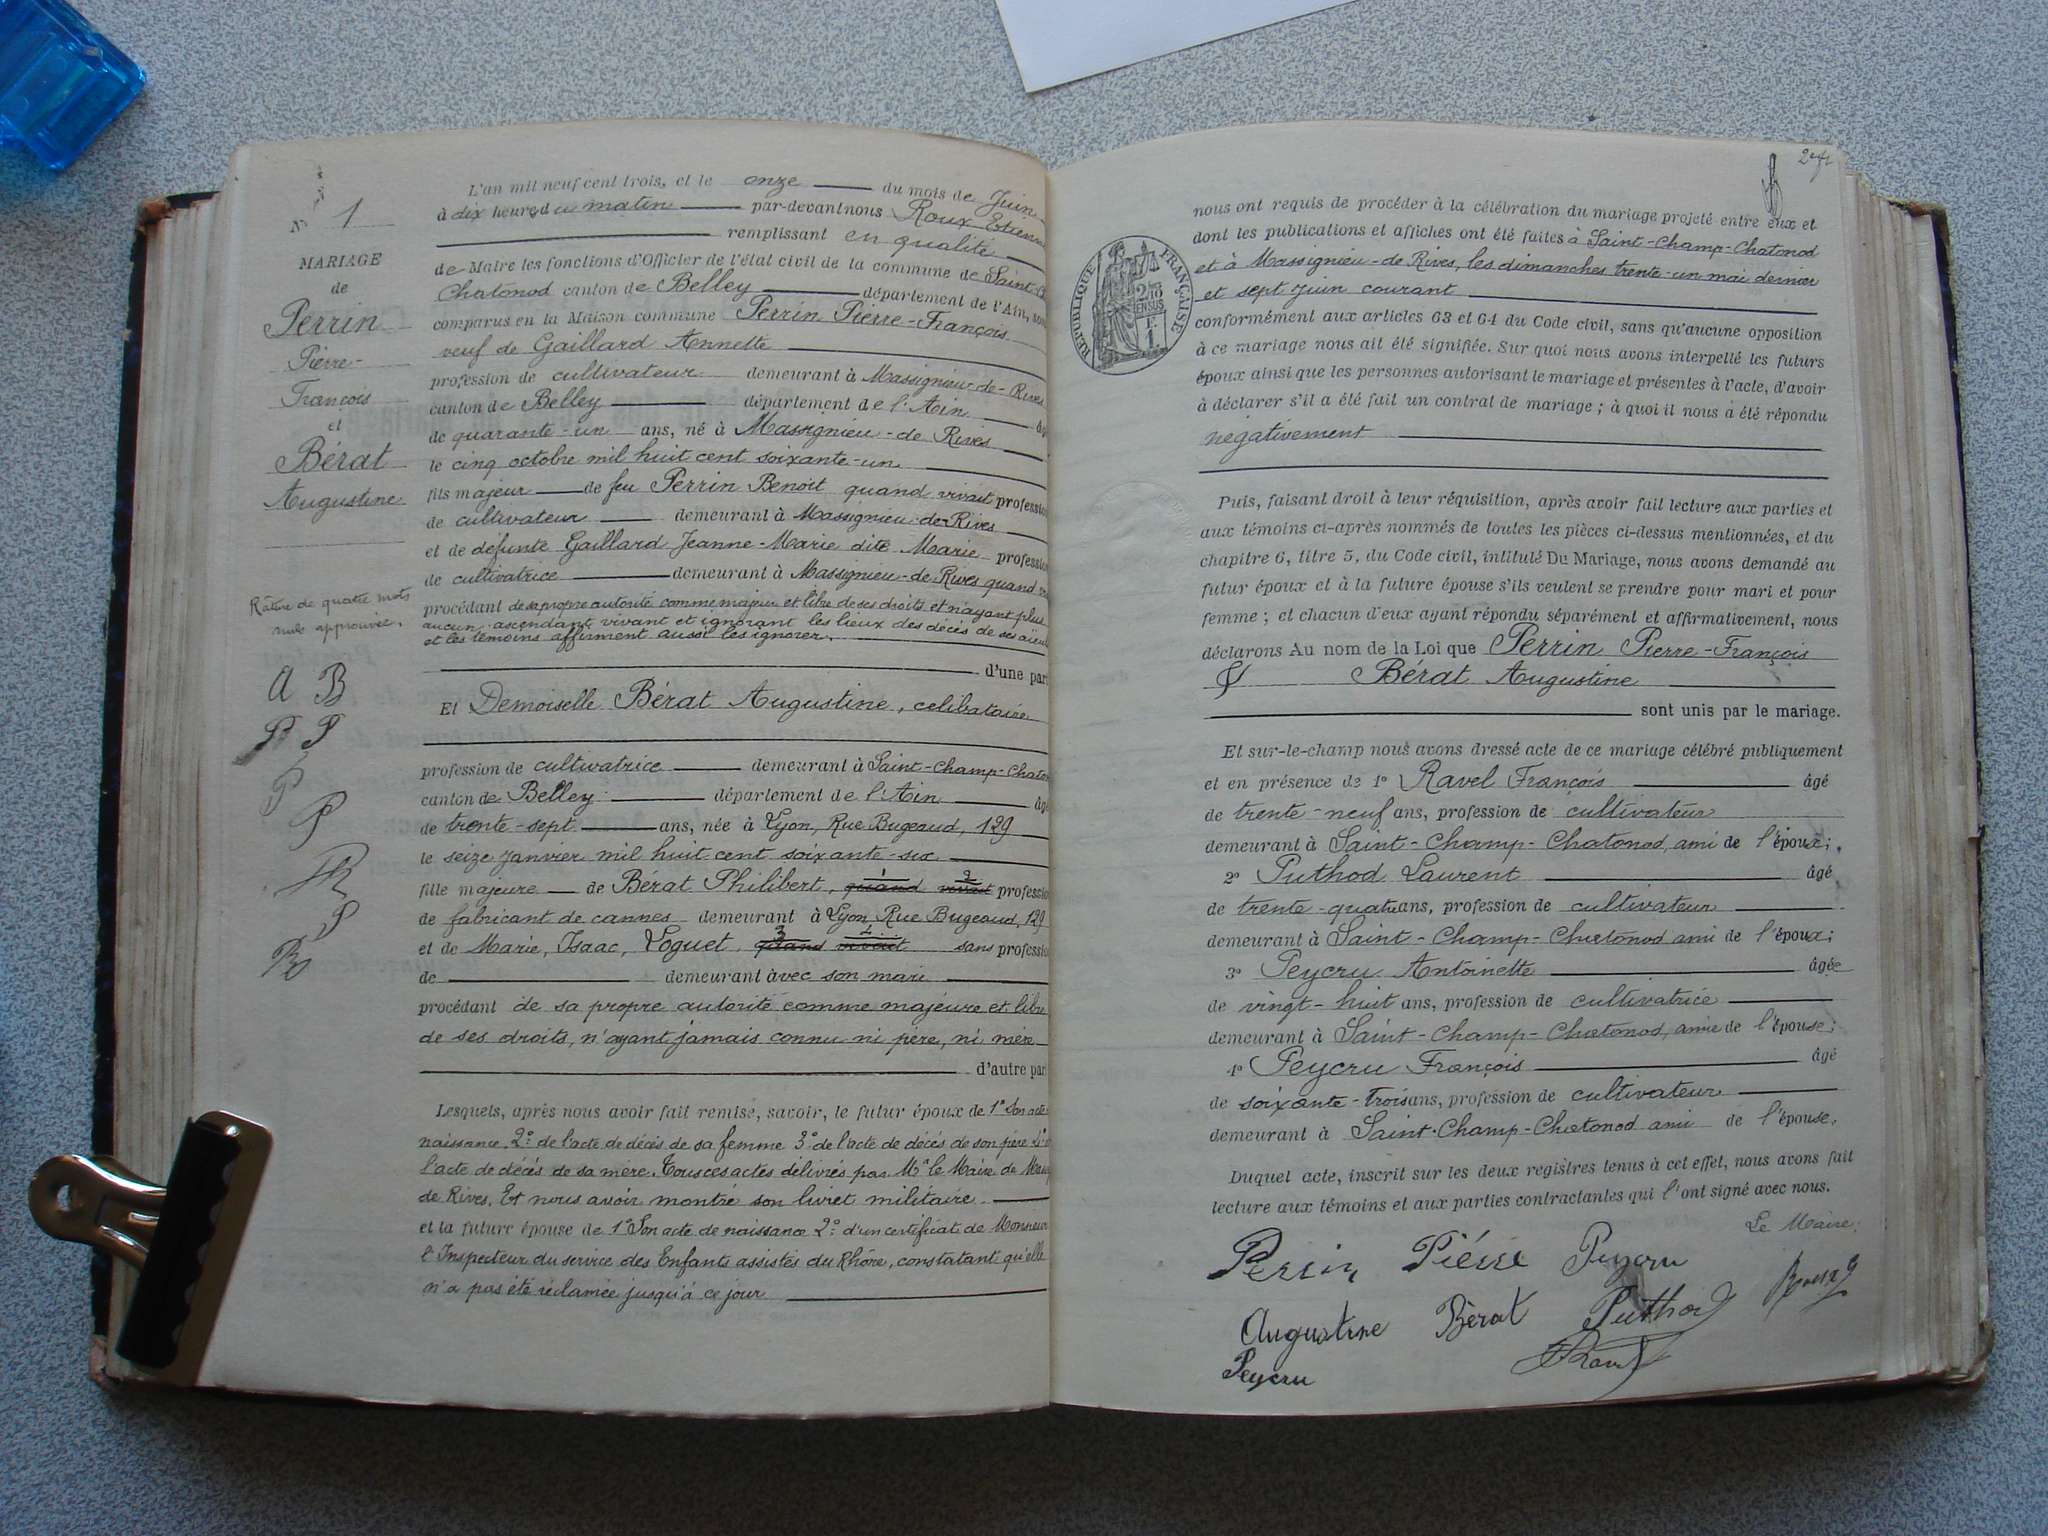 N° 1
MARIAGE
de
Perrin
Pierre-
François
et
Bérat
Augustine
Râture de quatre mots
nuls approuvée.
A B
P P
P
P
R
P
L'an mil neuf cent trois, et le onze du mois de Juin
à dix heures du matin par-devant nous Roux Etienne
remplissant en qualité
de Maire les fonctions d'Officier de l'état civil de la commune de Saint-
Chatonod canton de Belley département de l'Ain,
comparus en la Maison commune Perrin Pierre-François
veuf de Gaillard Annette
profession de cultivateur demeurant à Massignieu-de-Rives
canton de Belley département de l'Ain âg
de quarante-un ans, né à Massignieu-de Rives
le cinq octobre mil huit cent soixante-un
fils majeur de feu Perrin Benoit quand vivait profession
de cultivateur demeurant à Massignieu-de-Rives
et de défunte Gaillard Jeanne-Marie dite Marie profession
de cultivatrice demeurant à Massignieu-de Rives quand
procédant de sa propre autorité comme majeur et libre de ses droits et n'ayant plus
aucun ascendant vivant et ignorant les lieux des décès de ses aïeuls
et les témoins affirment aussi les ignorer.
d'une part
Et Demoiselle Bérat Augustine, celibataire
profession de cultivatrice demeurant à Saint-Champ-Chaton
canton de Belley département de l'Ain âg
de trente-sept ans, née à Lyon, Rue Bugeaud, 129
le seize janvier mil huit cent soixante-six
fille majeure de Bérat Philibert, quand vivait profession
1 2
de fabricant de cannes demeurant à Lyon Rue Bugeaud, 129
et de Marie, Isaac, Loguet quand vivait sans profession
3 4
de demeurant avec son mari
procédant de sa propre autorité comme majeure et libre
de ses droits, n'ayant jamais connu ni père, ni mère
d'autre part
Lesquels, après nous avoir fait remise, savoir, le futur époux de 1° Son acte
naissance 2° de l'acte de décès de sa femme 3° de l'acte de décès de son père 4°
l'acte de décès de sa mère. Tous ces actes délivrés par Mr le Maire de Massig
de Rives. Et nous avoir montré son livret militaire
et la future épouse de 1° Son acte de naissance 2° d'un certificat de Monsieur
l'Inspecteur du service des Enfants assistés du Rhône, constatant qu'elle
n'a pas été réclamée jusqu'à ce jour
RÉPUBLIQUE FRANÇAISE
nous ont requis de procéder à la célébration du mariage projeté entre eux et
dont les publications et affiches ont été faites à Saint-Champ-Chatonod
et à Massignieu-de Rives, les dimanches trente-un mai dernier
et sept juin courant
conformément aux articles 63 et 64 du Code civil, sans qu'aucune opposition
à ce mariage nous ait été signifiée. Sur quoi nous avons interpellé les futurs
époux ainsi que les personnes autorisant le mariage et présentes à l'acte, d'avoir
à déclarer s'il a été fait un contrat de mariage ; à quoi il nous a été répondu
négativement
Puis, faisant droit à leur réquisition, après avoir fait lecture aux parties et
aux témoins ci-après nommés de toutes les pièces ci-dessus mentionnées, et du
chapitre 6, titre 5, du Code civil, intitulé Du Mariage, nous avons demandé au
futur époux et à la future épouse s'ils veulent se prendre pour mari et pour
femme ; et chacun d'eux ayant répondu séparément et affirmativement, nous
déclarons Au nom de la Loi que Perrin Pierre-François
& Bérat Augustine
sont unis par le mariage.
Et sur-le-champ nous avons dressé acte de ce mariage célébré publiquement
et en présence de 1° Ravel François âgé
de trente-neuf ans, profession de cultivateur
demeurant à Saint-Champ-Chatonod, ami de l'époux;
2° Puthod Laurent âgé
de trente-quatre ans, profession de cultivateur
demeurant à Saint-Champ-Chatonod ami de l'époux;
3° Peycru Antoinette âgée
de vingt-huit ans, profession de cultivatrice
demeurant à Saint-Champ-Chatonod, amie de l'épouse;
4° Peycru François âgé
de soixante-trois ans, profession de cultivateur
demeurant à Saint-Champ-Chatonod ami de l'épouse.
Duquel acte, inscrit sur les deux registres tenus à cet effet, nous avons fait
lecture aux témoins et aux parties contractantes qui l'ont signé avec nous.
Le Maire:
Perrin Piérre Peycru
Augustine Bèrat Puthod
Peycru Ravel